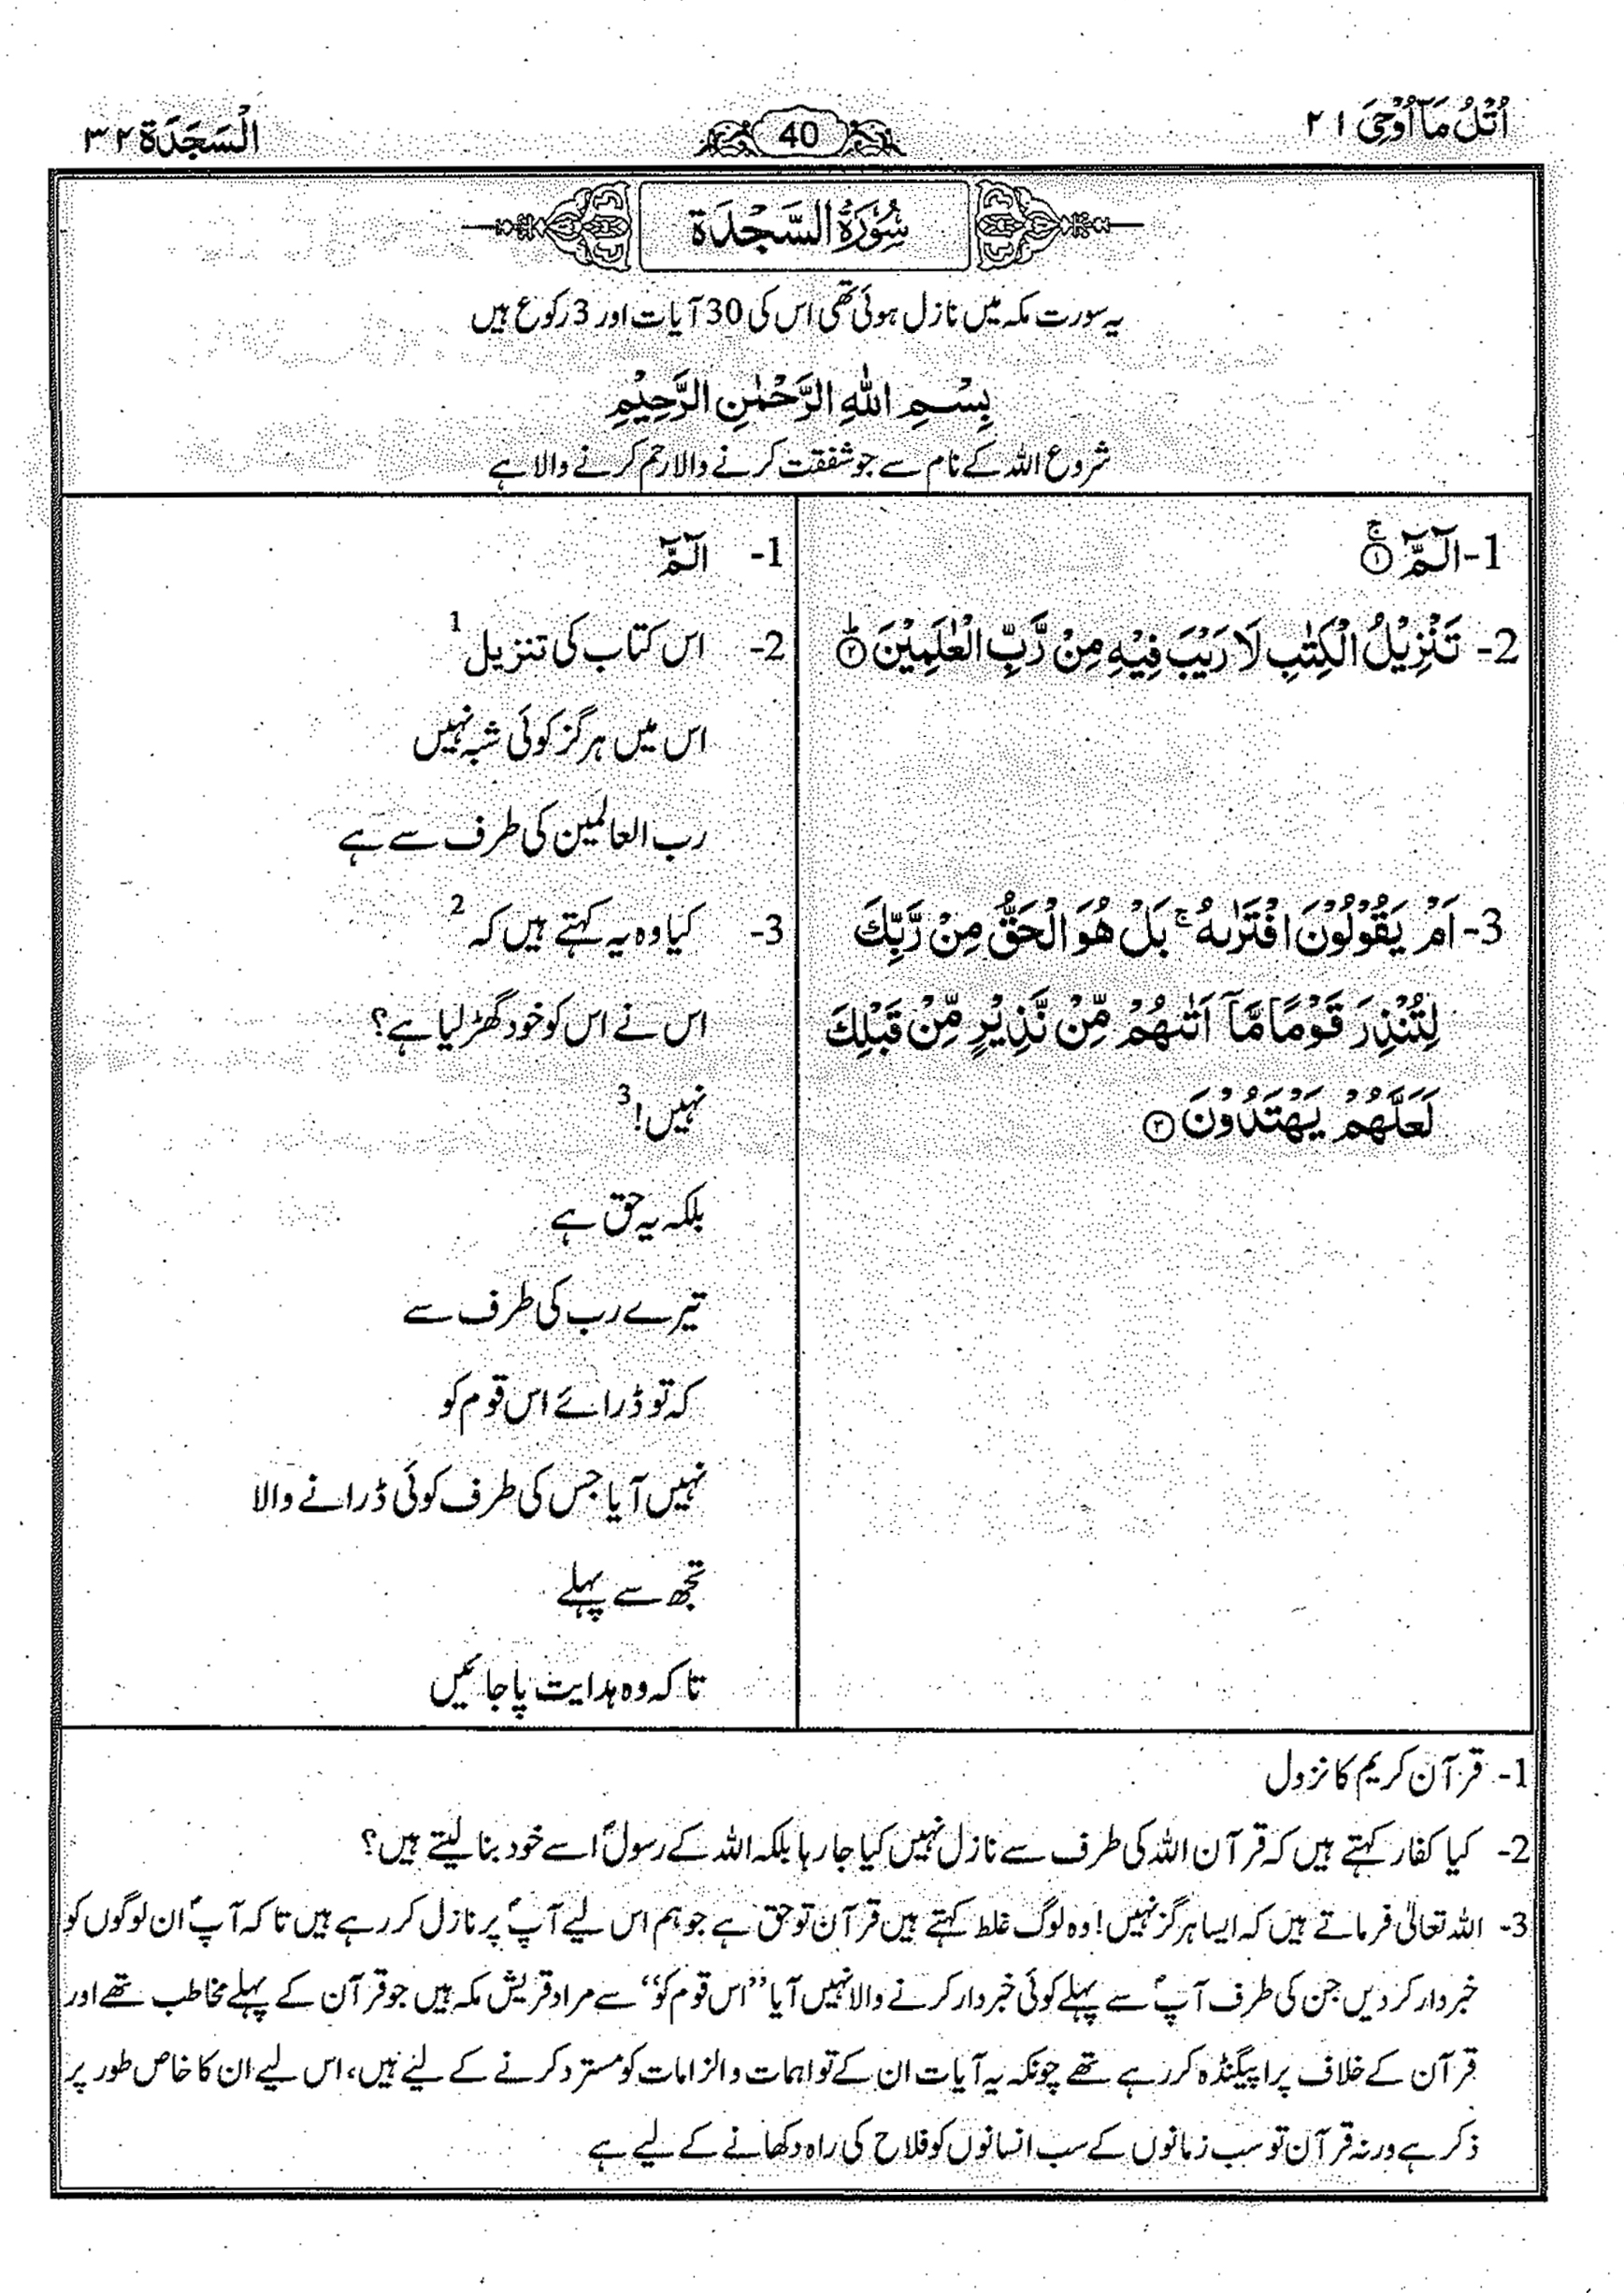 اُتْلُ مَآ اُوْحِيَ ٢١
40
اَلْسَجَدَة ٣٢
سُوْرَةُ السَّجْدَة
یہ سورت مکہ میں نازل ہوئی تھی اس کی 30 آیات اور 3 رکوع ہیں
بِسْمِ اللّٰهِ الرَّحْمٰنِ الرَّحِيْمِ
شروع اللہ کے نام سے جو شفقت کرنے والا رحم کرنے والا ہے
1- الٓمّٓ ۚ ①
2- تَنْزِيْلُ الْكِتٰبِ لَا رَيْبَ فِيْهِ مِنْ رَّبِّ الْعٰلَمِيْنَ ؕ ②
3- اَمْ يَقُوْلُوْنَ افْتَرٰىهُ ۚ بَلْ هُوَ الْحَقُّ مِنْ رَّبِّكَ
لِتُنْذِرَ قَوْمًا مَّاۤ اَتٰىهُمْ مِّنْ نَّذِيْرٍ مِّنْ قَبْلِكَ
لَعَلَّهُمْ يَهْتَدُوْنَ ③
1- الٓمّٓ
2- اس کتاب کی تنزیل 1
اس میں ہرگز کوئی شبہ نہیں
رب العالمین کی طرف سے ہے
3- کیا وہ یہ کہتے ہیں کہ 2
اس نے اس کو خود گھڑ لیا ہے؟
نہیں! 3
بلکہ یہ حق ہے
تیرے رب کی طرف سے
کہ تو ڈرائے اس قوم کو
نہیں آیا جس کی طرف کوئی ڈرانے والا
تجھ سے پہلے
تاکہ وہ ہدایت پا جائیں
1- قرآن کریم کا نزول
2- کیا کفار کہتے ہیں کہ قرآن اللہ کی طرف سے نازل نہیں کیا جا رہا بلکہ اللہ کے رسولؐ اسے خود بنا لیتے ہیں؟
3- اللہ تعالیٰ فرماتے ہیں کہ ایسا ہرگز نہیں! وہ لوگ غلط کہتے ہیں قرآن تو حق ہے جو ہم اس لیے آپؐ پر نازل کر رہے ہیں تاکہ آپؐ ان لوگوں کو
خبردار کر دیں جن کی طرف آپؐ سے پہلے کوئی خبردار کرنے والا نہیں آیا ”اس قوم کو“ سے مراد قریش مکہ ہیں جو قرآن کے پہلے مخاطب تھے اور
قرآن کے خلاف پراپیگنڈہ کر رہے تھے چونکہ یہ آیات ان کے تواہمات و الزامات کو مسترد کرنے کے لیے ہیں، اس لیے ان کا خاص طور پر
ذکر ہے ورنہ قرآن تو سب زمانوں کے سب انسانوں کو فلاح کی راہ دکھانے کے لیے ہے